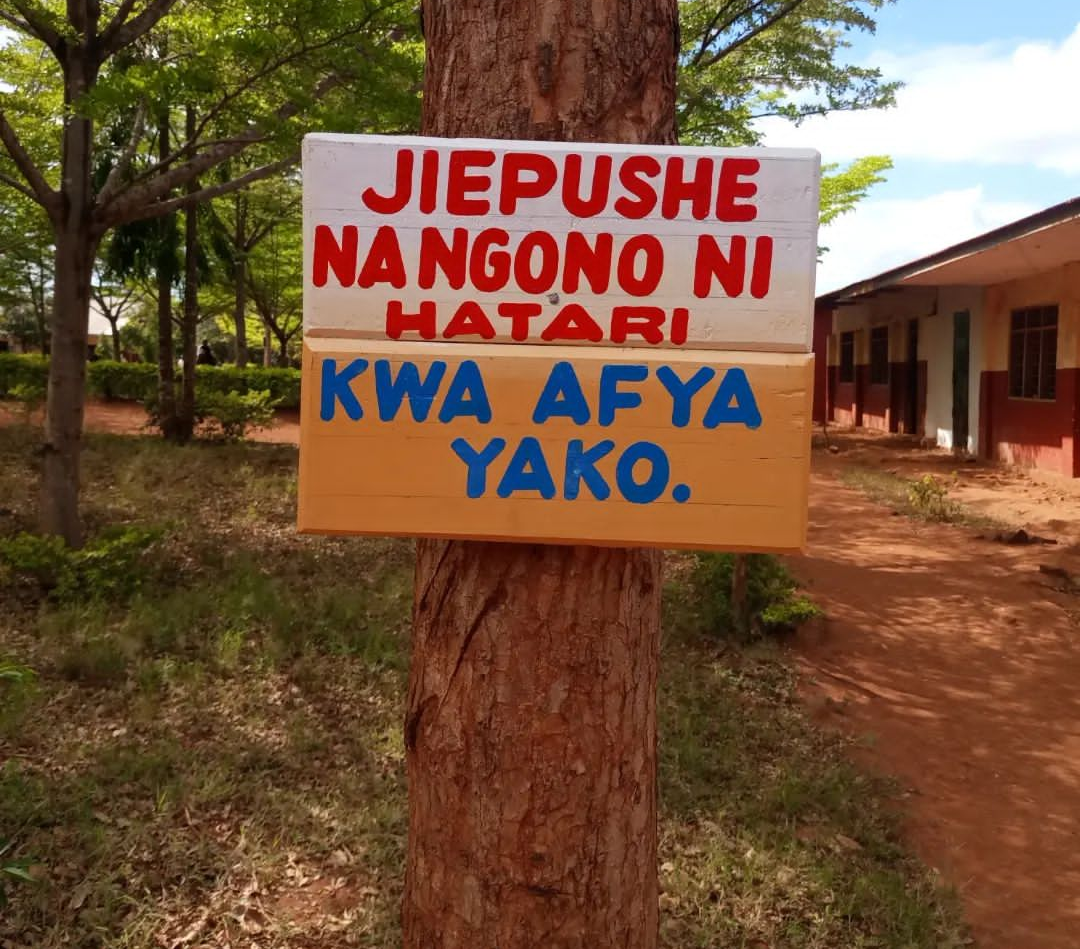 JIEPUSHE
NA NGONO NI
HATARI
KWA AFYA
YAKO.